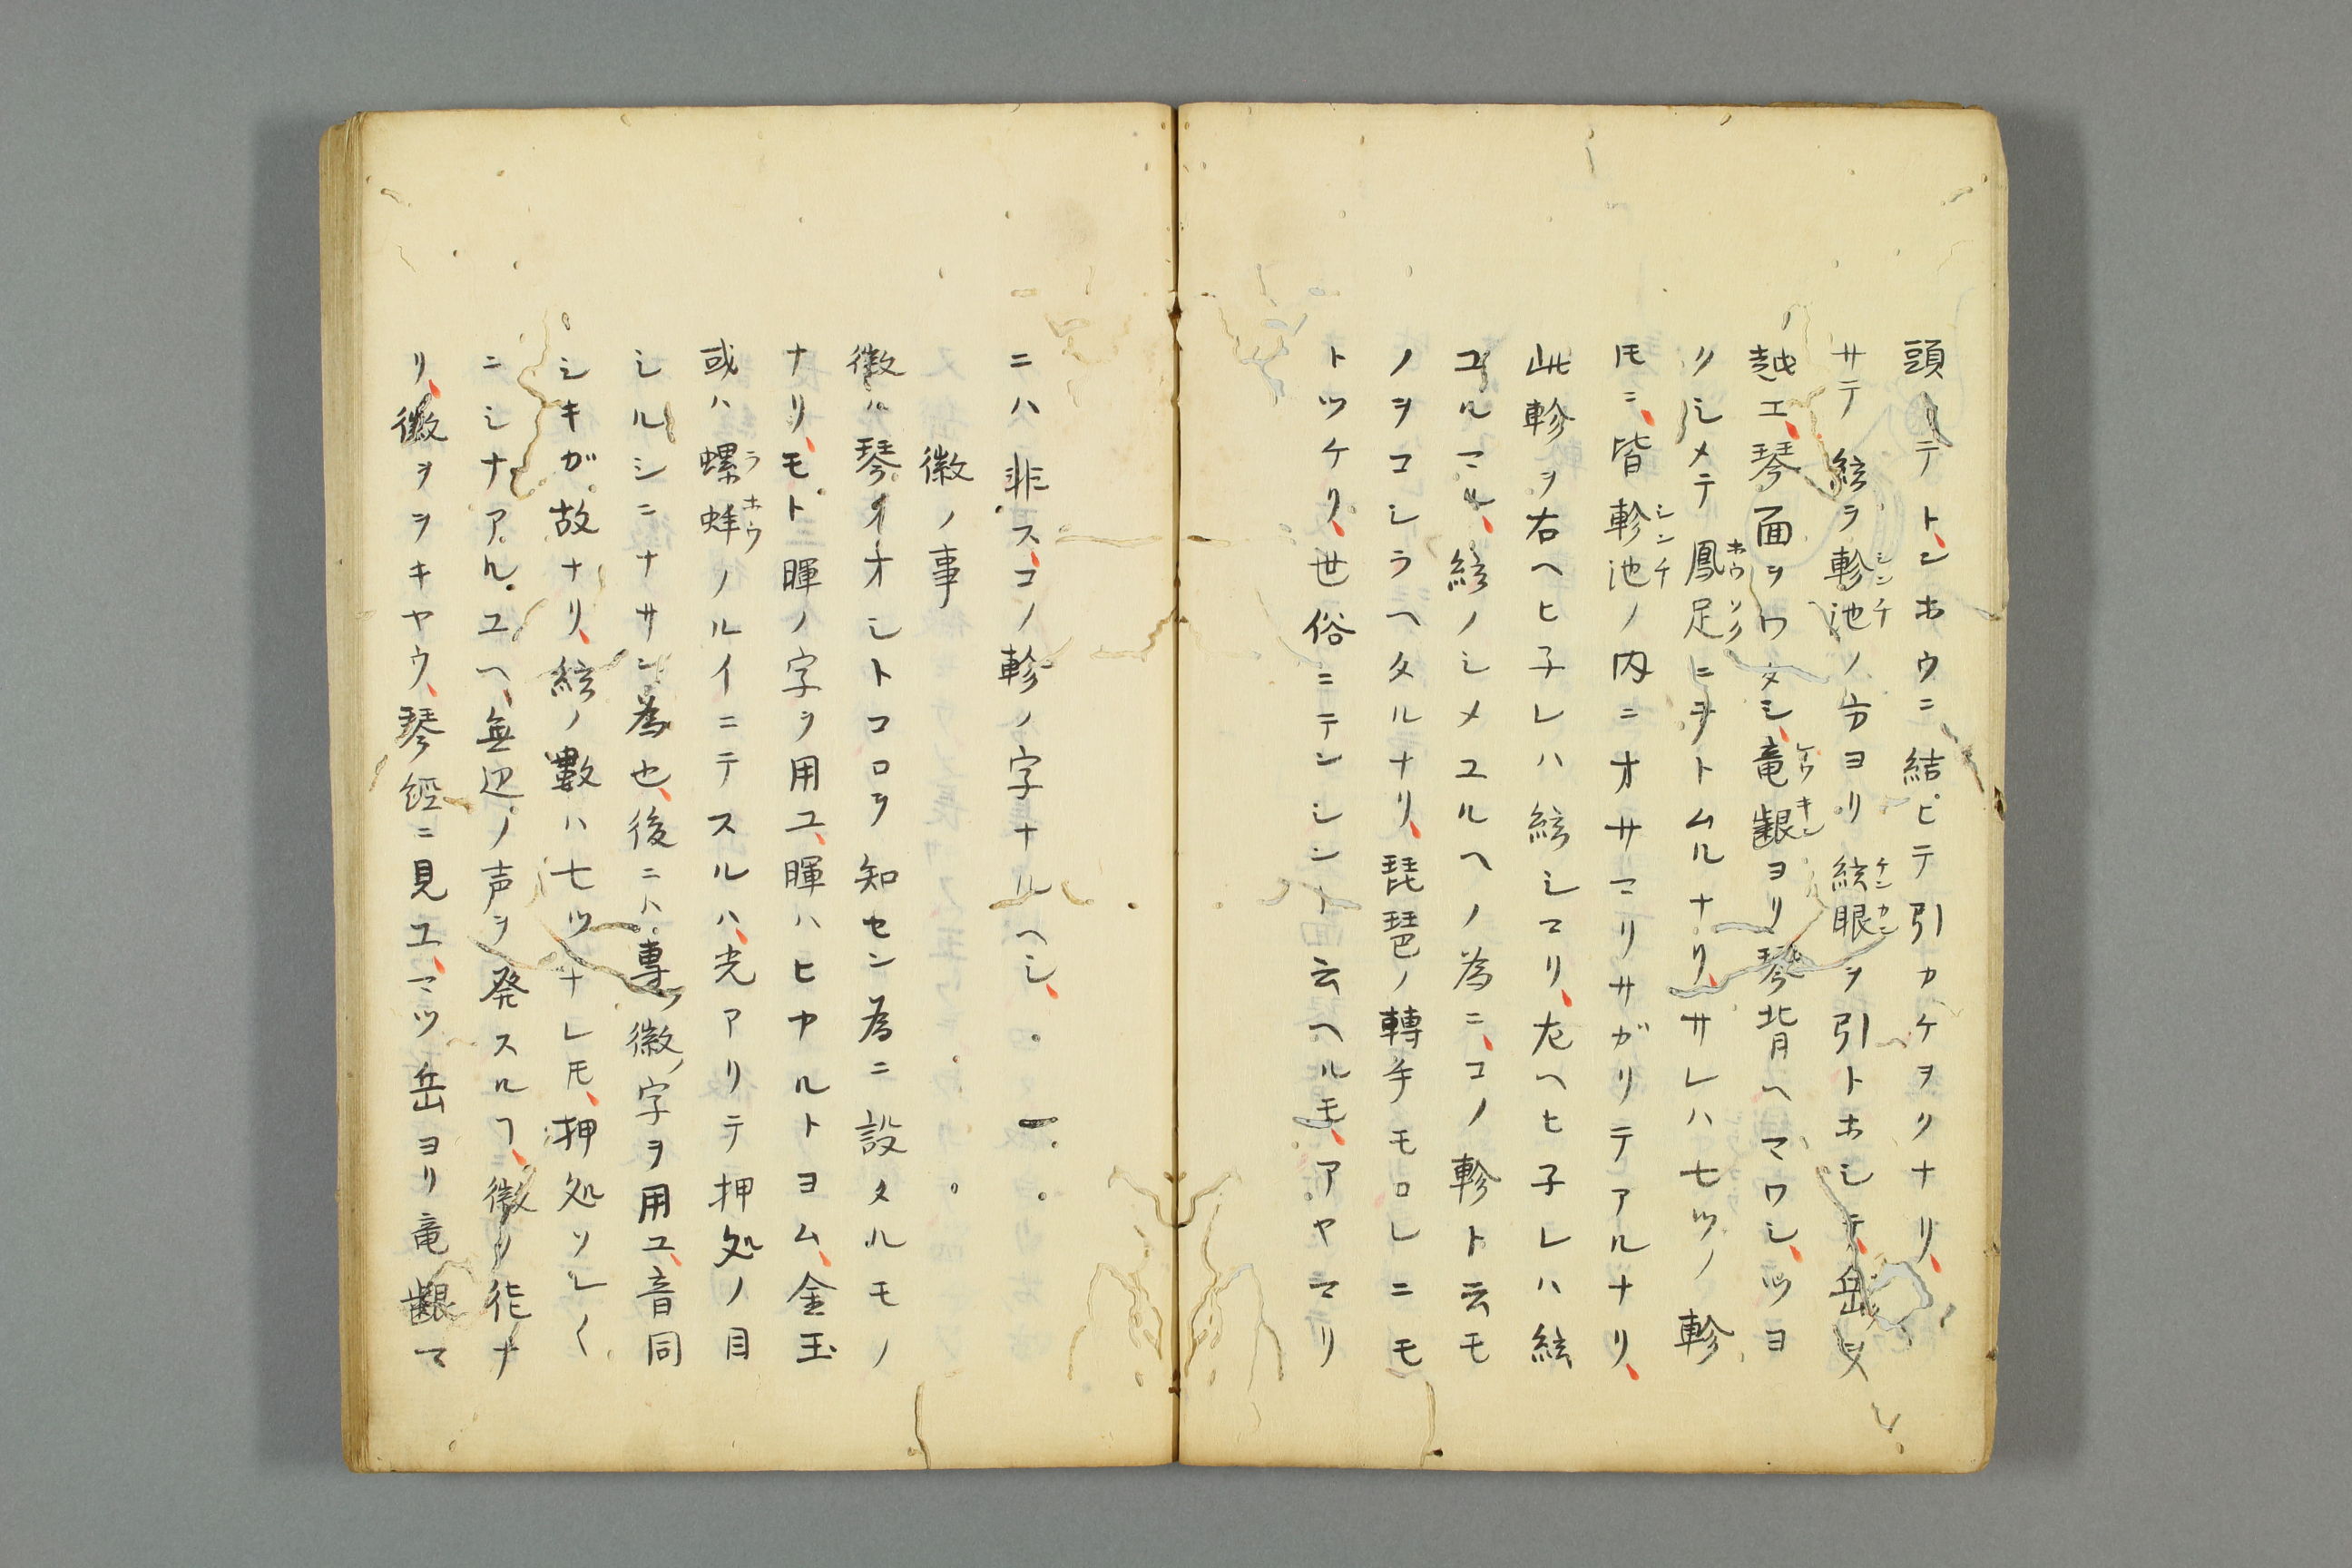 頭ニテトンホウニ結ビテ引カケヲクナリ、
サテ絃ヲ軫池ノ方ヨリ絃眼ヲ引トホシテ、岳ヲ
越エ、琴面ヲワタシ、竜齦ヨリ琴背ヘマワシ、ツヨ
クシメテ鳳足ニヲトムルナリ、サレハ七ツノ軫
𪜈ニ、皆軫池ノ内ニオサマリサガリテアルナリ、
此軫ヲ右ヘヒ子レハ絃シマリ、左ヘヒ子レハ絃
ユルマル、絃ノシメユルヘノ為ニ、コノ軫ト云モ
ノヲコシラヘタルナリ、琵琶ノ轉手モコレニモ
トツケリ、世俗ニテンシント云ヘルモ、アヤマリ
ニハ非ス、コノ軫ノ字ナルヘシ、
徽ノ事
徽ハ琴ノオシトコロヲ知セン為ニ設タルモノ
ナリ、モト暉ノ字ヲ用ユ、暉ハヒカルトヨム、金玉
或ハ螺蚌ノルイニテスルハ、光アリテ押処ノ目
シルシニナサン為也、後ニハ専徽ノ字ヲ用ユ、音同
シキガ故ナリ、絃ノ數ハ七ツナレ𪜈、押処ソレ〱
ニシナアルユヘ、無辺ノ声ヲ発スルヿ、徽ノ能ナ
リ、徽ヲヲキヤウ、琴經ニ見エ、マツ岳ヨリ竜齦マ